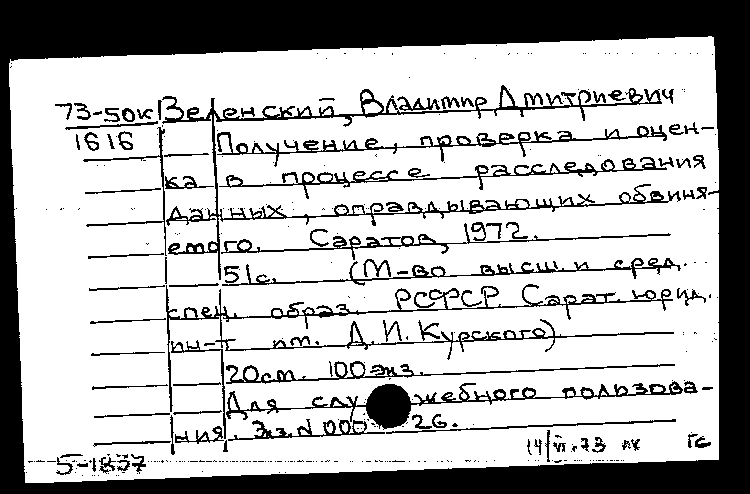 73-50к Зеленский, Владимир Дмитриевич
1616 Получение, проверка и оцен-
ка в процессе расследования
данных, оправдывающих обвиня-
емого. Саратов, 1972.
51с. (М-во высш. и сред.
спец. образ. РСФСР. Сарат. юрид.
ин-т им. Д. И. Курского)
20см. 100 экз.
Для служебного пользова-
ния. Экз. N 000 26.
5-1837 14/VI-73 гс